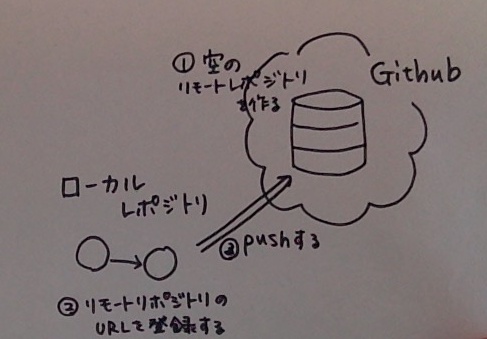 ① 空の
リモートレポジトリ
を作る
Github
ローカル
レポジトリ
③pushする
② リモートリポジトリの
URLを登録する